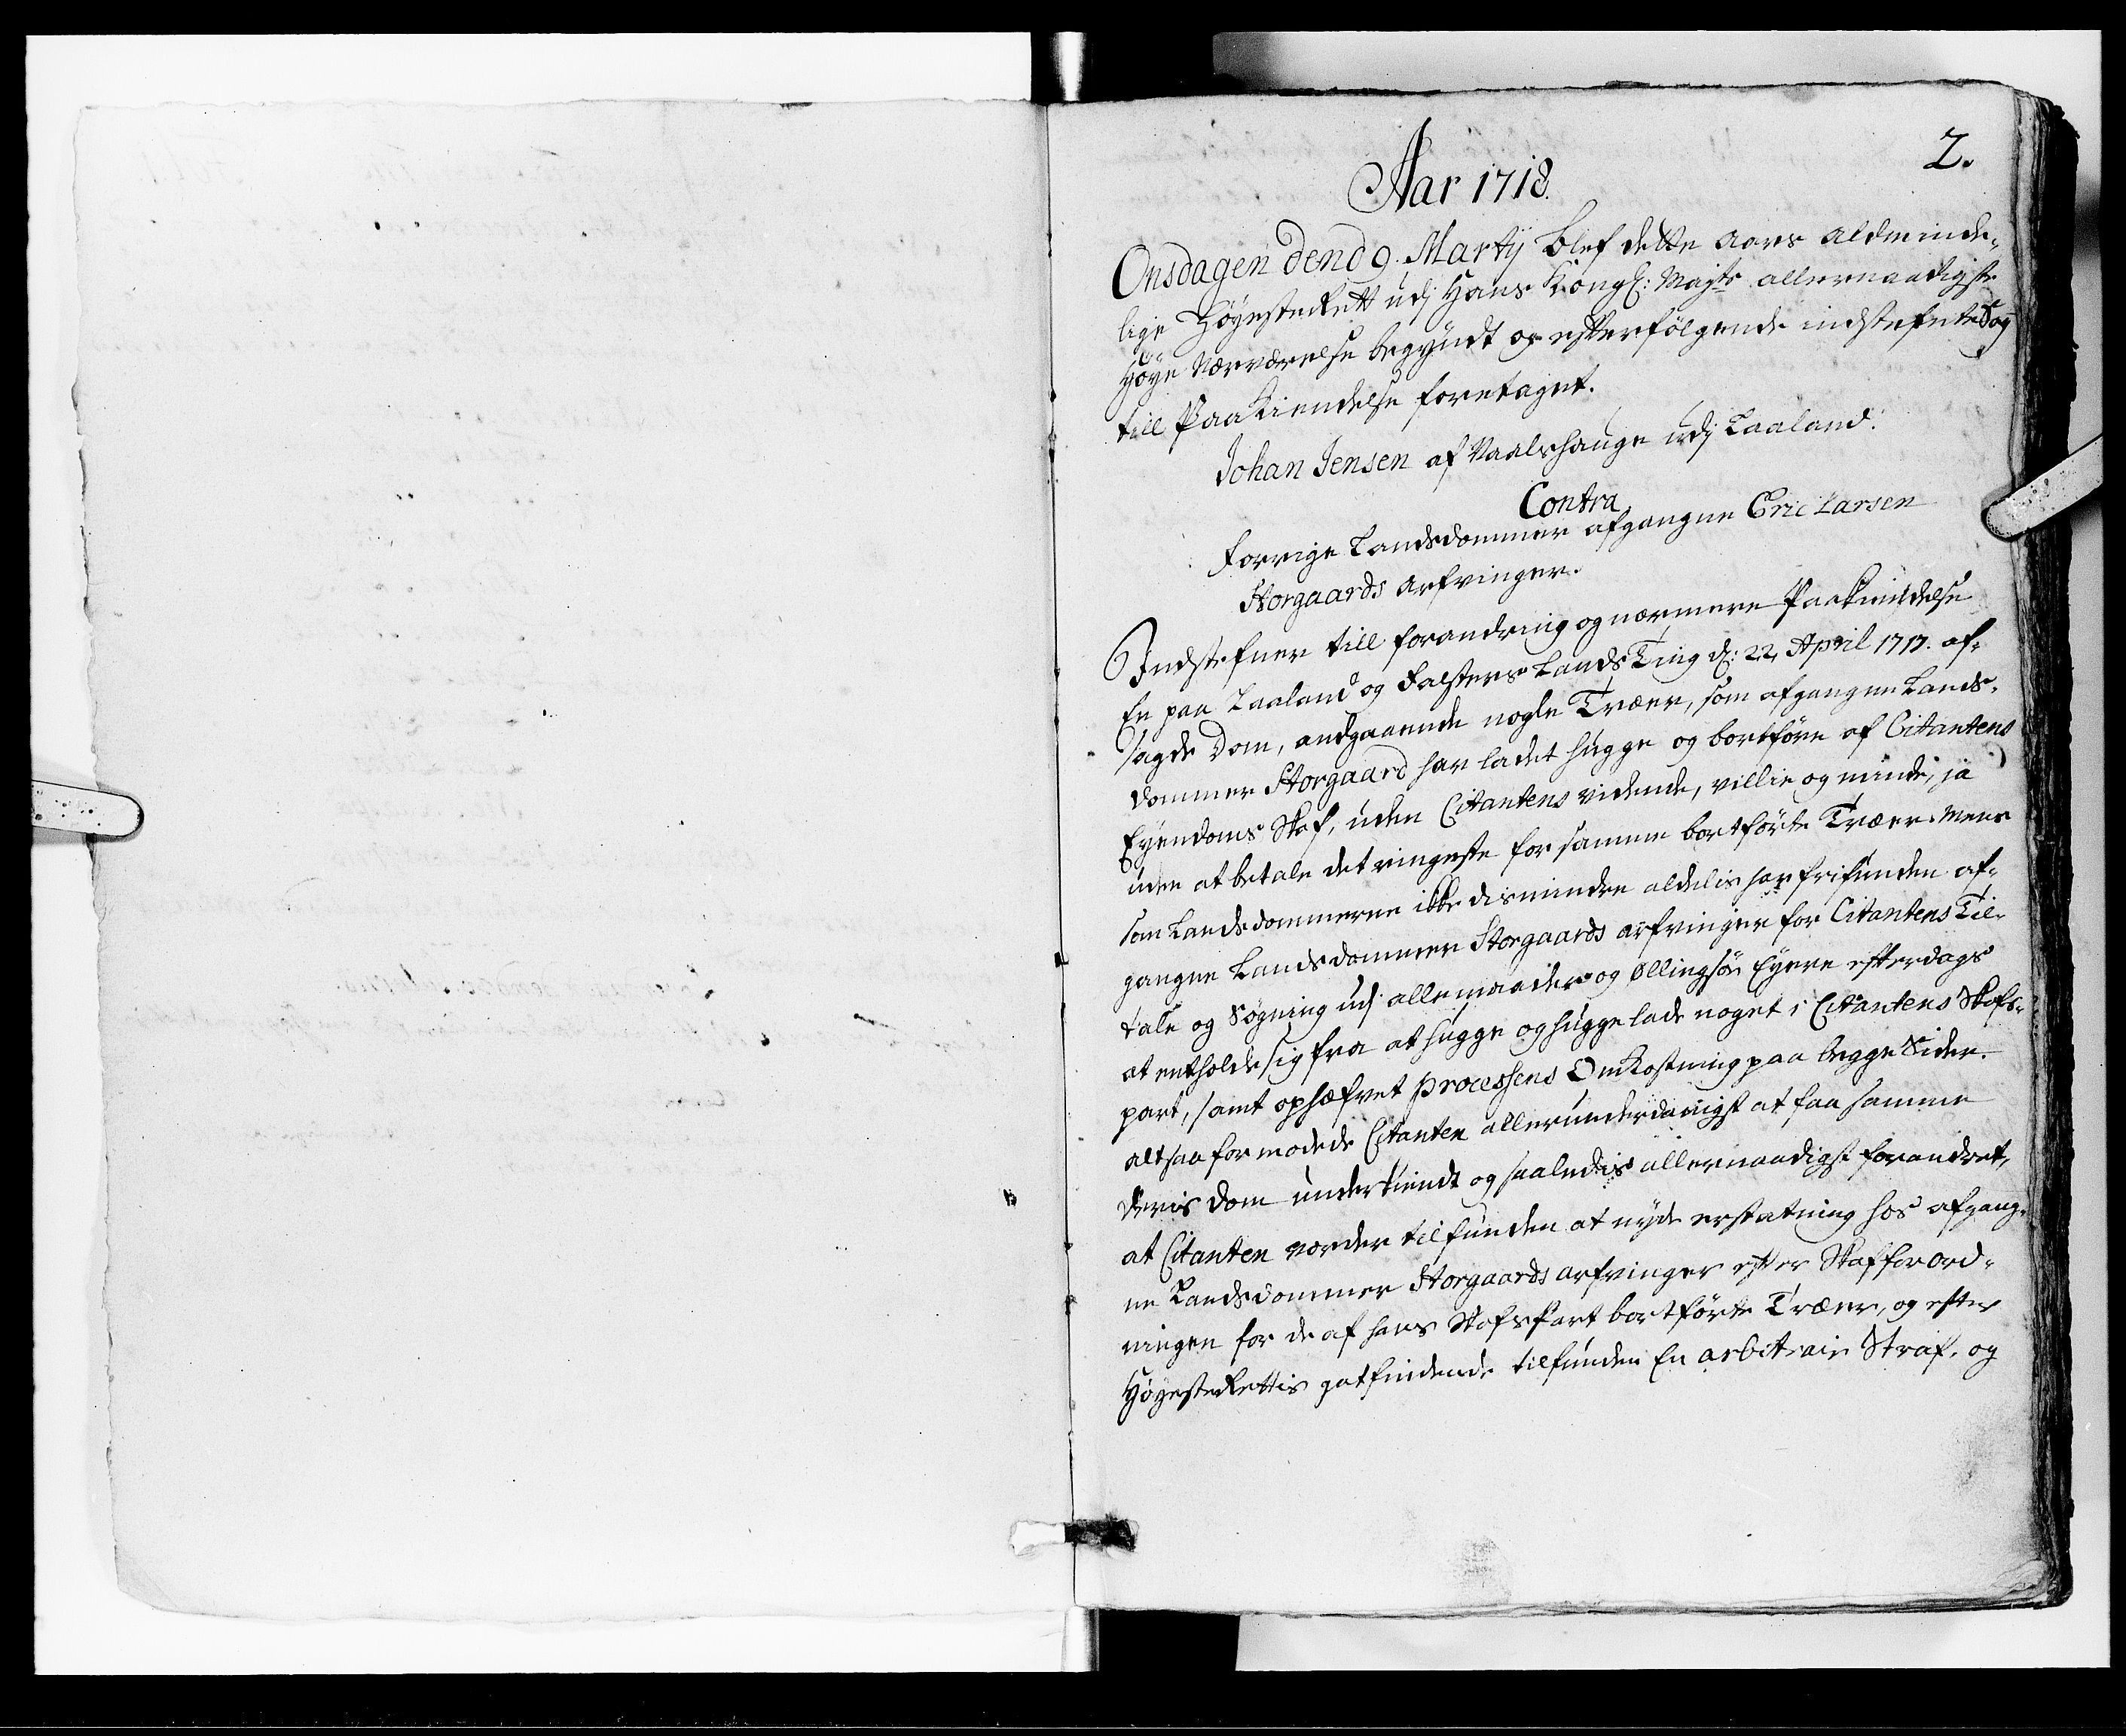 2.
Aar 1718.
Onsdagen dend 9. Martij blef dette Aars Aldminde-
lige Høyeste Rett udj Hans Kongl: Mayts allernaadigste
Høye Nærværelse begyndt og efterfølgende indstefnte Sag
till Paakiendelse foretaget.
Johan Jensen af Vaalshauge udj Laaland.
Contra
Forrige Landsdommer afgangne Eric Larsen
Storgaards Arfvinger.
Indstefner till forandring og nærmere Paakiendelse
En paa Laaland og Falsters Lands Ting d: 22 April 1717. af-
sagde Dom, andgaaende nogle Træer, som afgangne Lands-
dommer Storgaard har ladet hugge og bortføre af Citantens
Eyendoms Skof, uden Citantens vidende, villie og minde, ja
uden at betale det ringeste for samme bortførte Træer. Mens
som Landsdommerne ikke dismindre aldelis har frifunden af-
gangne Landsdommer Storgaards Arfvinger for Citantens Til-
tale og Søgning udj alle maader og Ollingsøe Eyere efterdags
at entholde sig fra at hugge og hugge lade noget i Citantens Skofs-
part, samt ophæfvet Processens Omkostning paa begge Sider.
altsaa formodede Citanten allerunderdanigst at faa samme
deris Dom underkiendt og saaledis allernaadigst forandret,
at Citanten vorder tilfunden at nyde erstatning hos afgang-
ne Landsdommer Storgaards arfvinger efter Skofforord-
ningen for de af hans Skofs Part bortførte Træer, og efter
Høyeste Rettis gotfindende tilfunden En arbitrair Straf, og